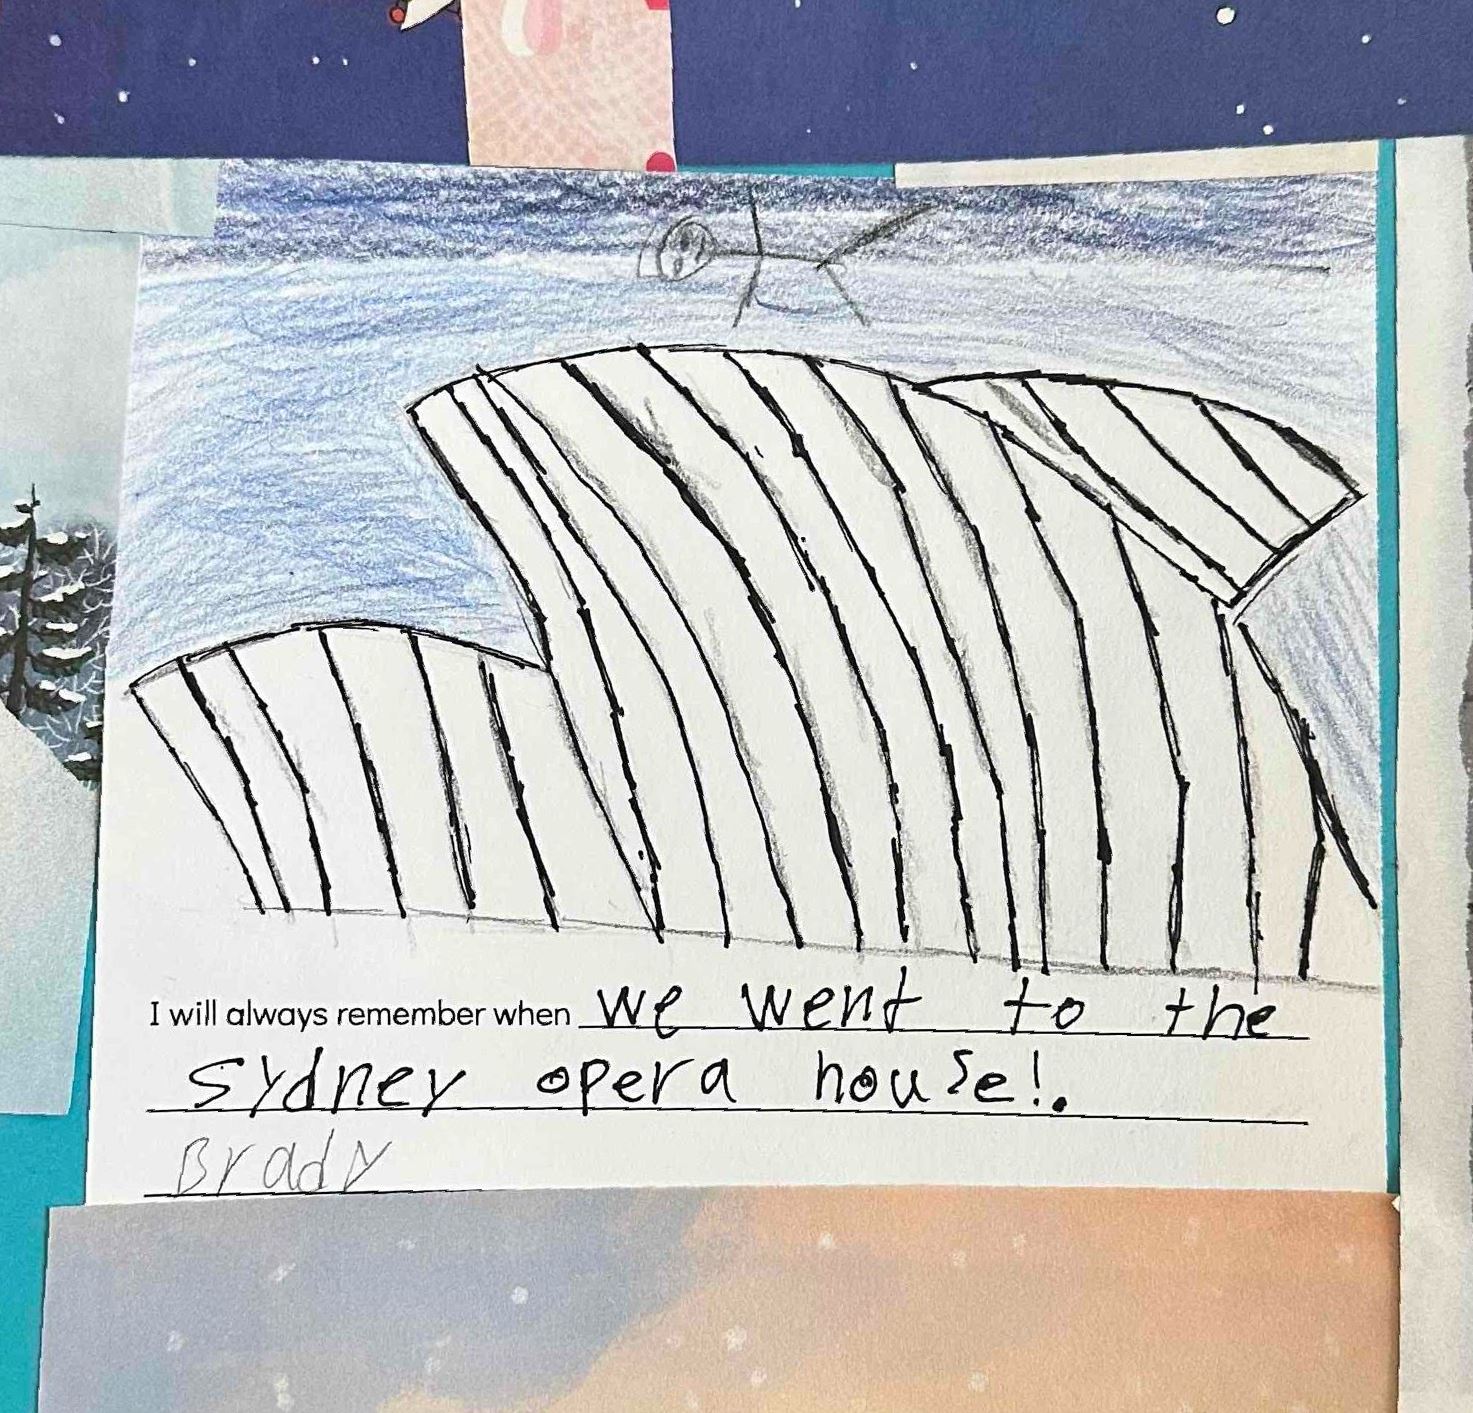 I will always remember when we went to the
Sydney opera house!.
Brady